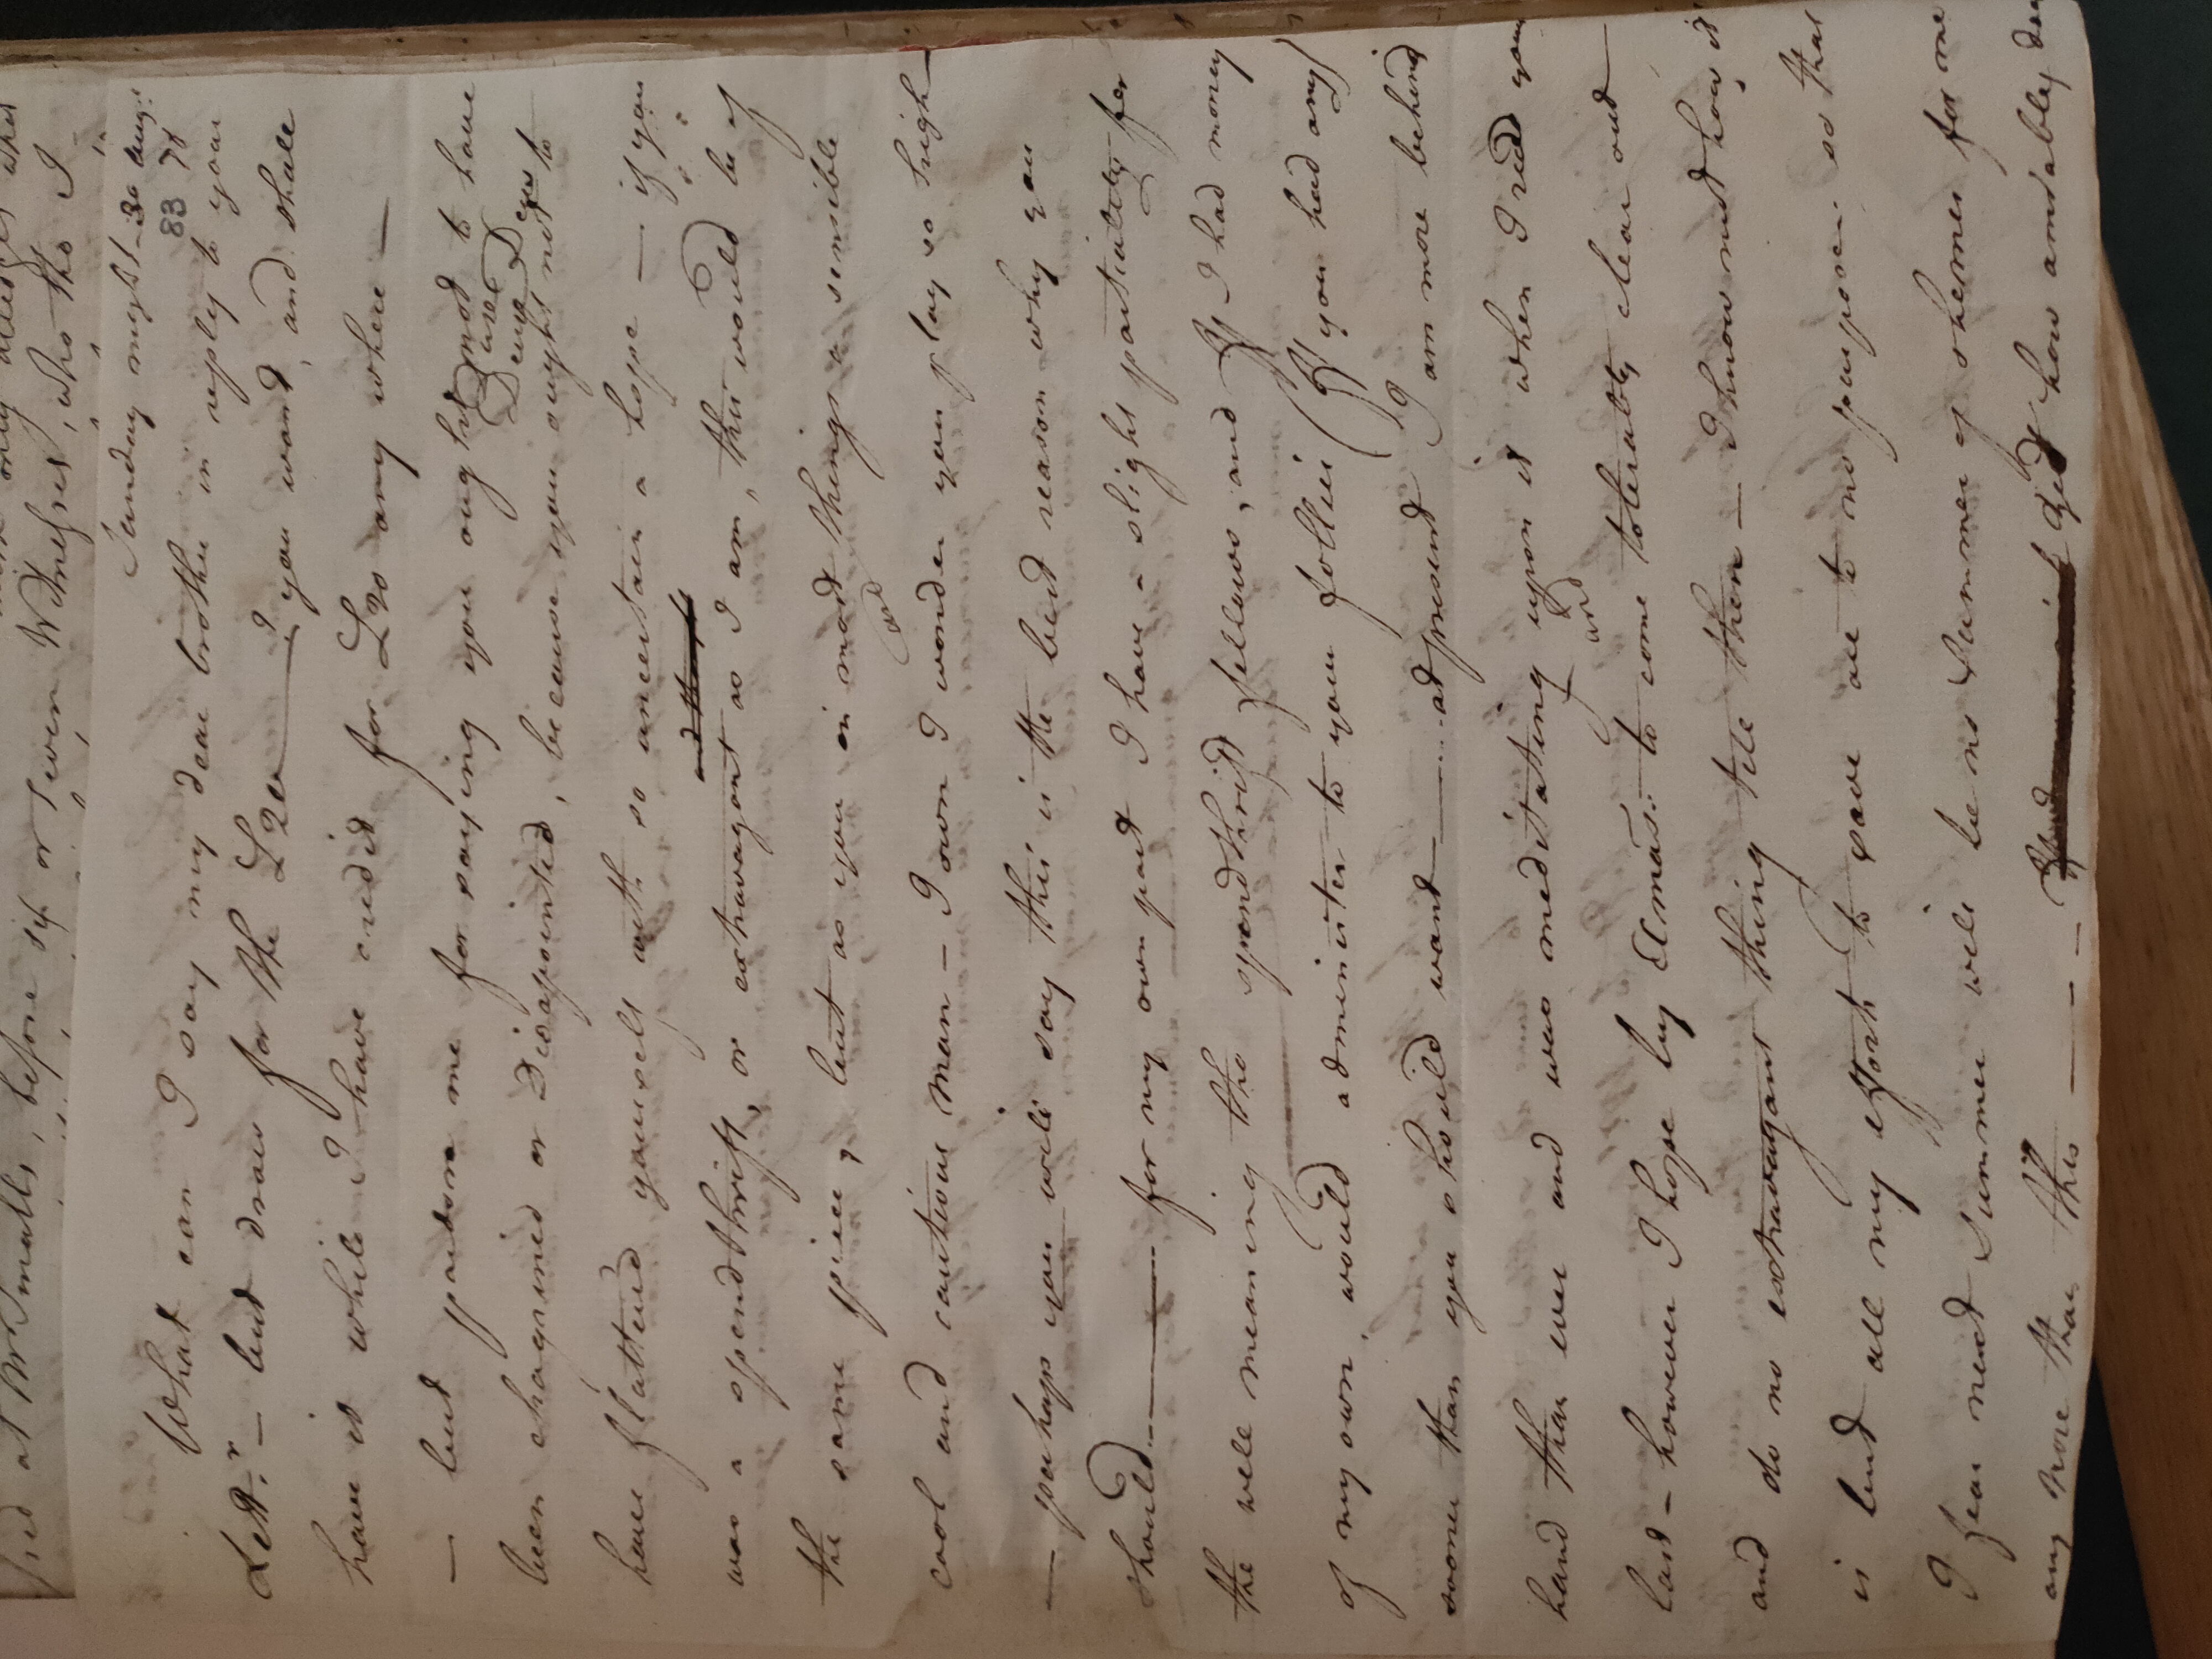 before six or seven Witnesses, who tho I
Sunday night - 30 Augt
83 78
What can I say my dear brother in reply to your
Lettr. — but draw for the £20 — if you want, and shall
have it while I have credit for £20 any where —
— but pardon me for saying you ought not to have
been chagrined or Disapointed, because you ought not to
have flattered yourself with so uncertain a hope — if you
was a spendthrift, or extravagant as I am, this would be of
the same piece, but as you in most things a sensible
cool and cautious man — I own I wonder you play so high
and
— perhaps you will say this is the best reason why you
should — for my own part I have a slight partiality for
the well meaning tho spendthrift fellows, and If I had money
of my own, would administer to your follies (If you had any)
sooner than you should want — at present I am more behind
hand than ever and was meditating upon it when I recd your
last — however I hope by Elmass: to come tolerably clear out
and
and do no extravagant thing till then — I know not how it
is but all my efforts to save are to no purpose. so that
I fear next Summer will be no Summer of shemes for me
any more than this — — — If how amiably